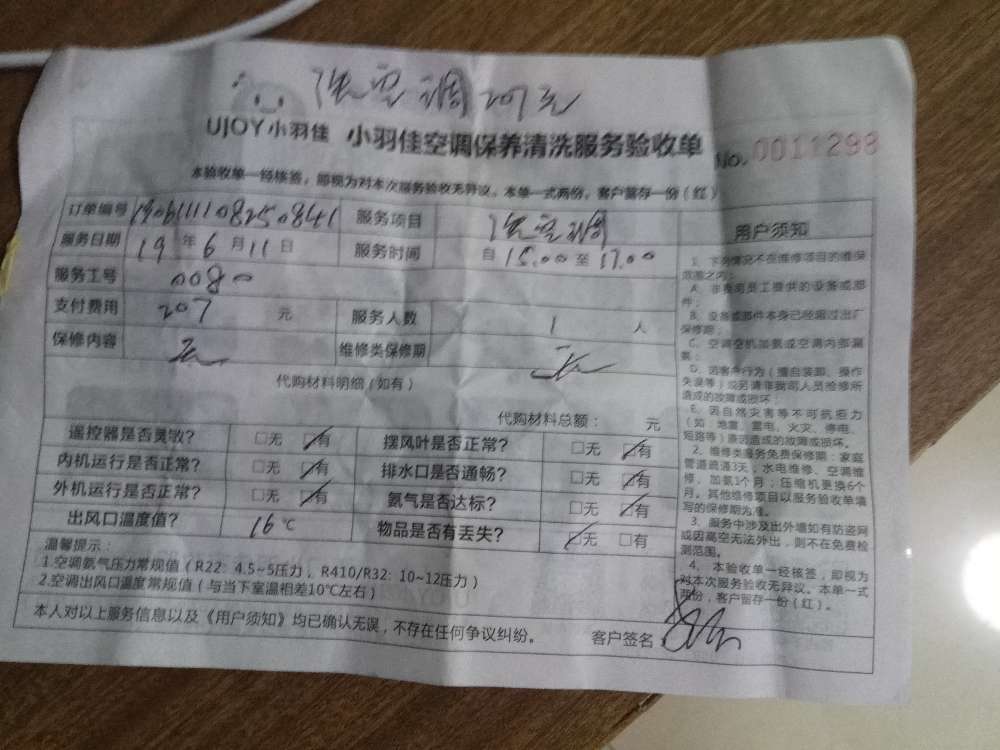 洗空调207元
UJOY小羽佳 小羽佳空调保养清洗服务验收单 No.0011293
本验收单一经核签，即视为对本次服务验收无异议。本单一式两份，客户留存一份(红)
订单编号 服务项目 洗空调
服务日期 19年6月11日 服务时间 自15.00至17.00
服务工号 0080
支付费用 207 元 服务人数 1 人
保修内容 无 维修类保修期 无
代购材料明细(如有)
代购材料总额： 元
遥控器是否灵敏? □无 ☑有 摆风叶是否正常? □无 ☑有
内机运行是否正常? □无 ☑有 排水口是否通畅? □无 ☑有
外机运行是否正常? □无 ☑有 氨气是否达标? □无 ☑有
出风口温度值? 16℃ 物品是否有丢失? ☑无 □有
温馨提示：
1.空调氨气压力常规值（R22: 4.5~5压力，R410/R32: 10~12压力）
2.空调出风口温度常规值（与当下室温相差10℃左右）
本人对以上服务信息以及《用户须知》均已确认无误，不存在任何争议纠纷。 客户签名
用户须知
1、下列情况不在维修项目的维保
范围之内：
A、非我司员工提供的设备或部
件；
B、设备或部件本身已经超过出厂
保修期；
C、空调空机加氨或空调内部漏
氨；
D、因客户行为（擅自装卸、操作
失误等）或另请非我司人员检修所
造成的故障或损坏；
E、因自然灾害等不可抗拒力
（如 地震、雷电、火灾、停电、
短路等）原因造成的故障或损坏。
2、维修类服务免费保修期：家庭
管道疏通3天；水电维修、空调维
修、加氨1个月；压缩机更换6个
月。其他维修项目以服务验收单填
写的保修期为准。
3、服务中涉及出外墙如有防盗网
或因高空无法外出，则不在免费检
测范围。
4、本验收单一经核签，即视为
对本次服务验收无异议。本单一式
两份，客户留存一份（红）。